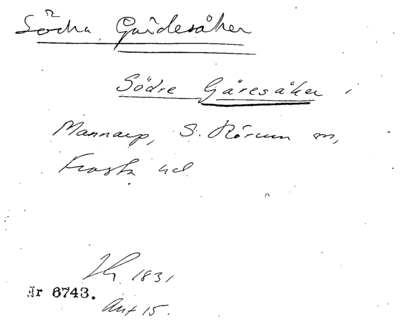 Södra Guidesåker
Södre Gåresåker i
Mannarp, S. Rörum sn,
Frosta hd
1831
Nr 6743.
Akt 15.